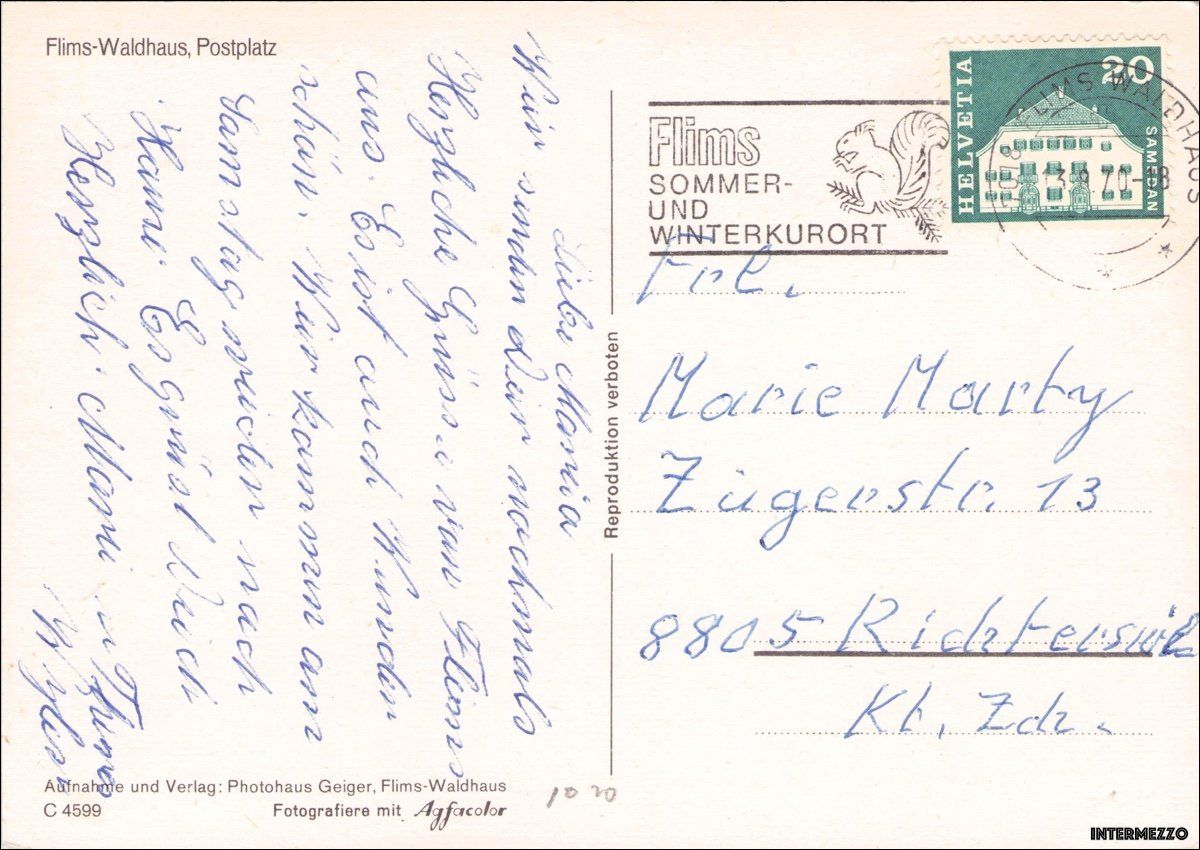 Flims-Waldhaus, Postplatz
Liebe Maria
Wir senden Dir nochmals
Herzliche Grüsse von Flims
uns. Es ist auch
schön. Wir kommen am
Samstag wieder nach
Hause Es grüsst Dich
Herzlich. Mami u
Aufnahme und Verlag: Photohaus Geiger, Flims-Waldhaus
C 4599
Fotografiere mit Agfacolor
Reproduktion verboten
10 20
Flims
SOMMER-
UND
WINTERKURORT
HELVETIA
20
SAMEDAN
FLIMS WALDHAUS
Frl.
Marie Marty
Zugerstr. 13
8805 Richterswil
Kt. Zch.
INTERMEZZO